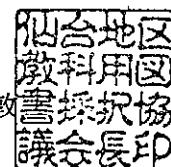 仙台地区
教科用図
書採択協
議会長印
教